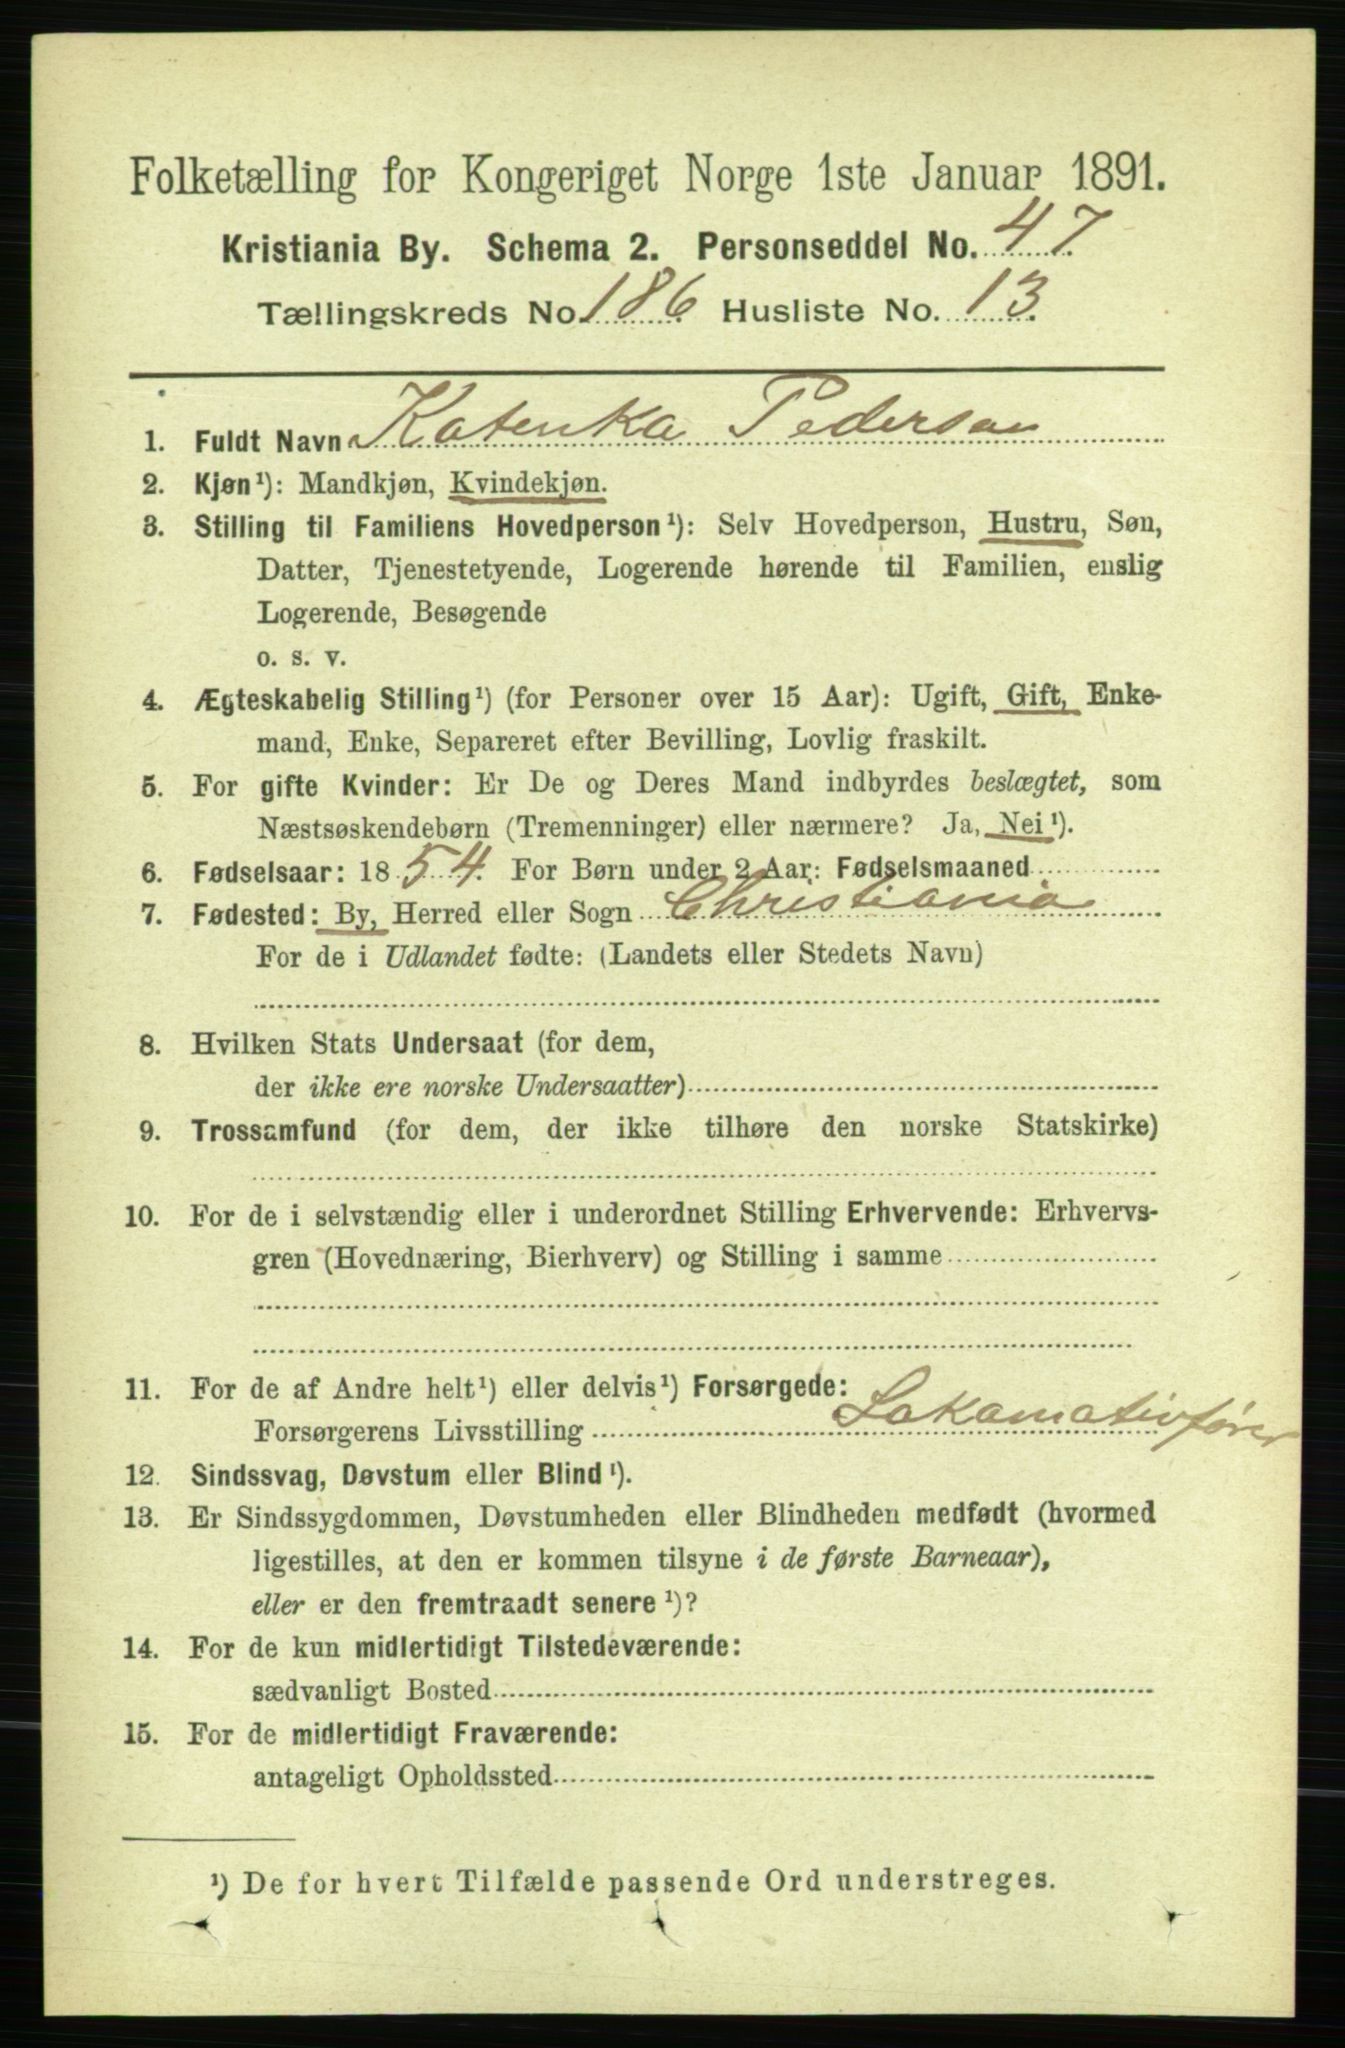 Folketælling for Kongeriget Norge 1ste Januar 1891.
Kristiania By. Schema 2. Personseddel No. 47.
Tællingskreds No. 186 Husliste No. 13.
1. Fuldt Navn Katenka Pedersen
2. Kjøn¹): Mandkjøn, Kvindekjøn.
3. Stilling til Familiens Hovedperson¹): Selv Hovedperson, Hustru, Søn,
Datter, Tjenestetyende, Logerende hørende til Familien, enslig
Logerende, Besøgende
o. s. v.
4. Ægteskabelig Stilling¹) (for Personer over 15 Aar): Ugift, Gift, Enke-
mand, Enke, Separeret efter Bevilling, Lovlig fraskilt.
5. For gifte Kvinder: Er De og Deres Mand indbyrdes beslægtet, som
Næstsøskendebørn (Tremenninger) eller nærmere? Ja, Nei¹).
6. Fødselsaar: 1854. For Børn under 2 Aar: Fødselsmaaned
7. Fødested: By, Herred eller Sogn Christiania
For de i Udlandet fødte: (Landets eller Stedets Navn)
8. Hvilken Stats Undersaat (for dem,
der ikke ere norske Undersaatter)
9. Trossamfund (for dem, der ikke tilhøre den norske Statskirke)
10. For de i selvstændig eller i underordnet Stilling Erhvervende: Erhvervs-
gren (Hovednæring, Bierhverv) og Stilling i samme
11. For de af Andre helt¹) eller delvis¹) Forsørgede:
Forsørgerens Livsstilling Lokomotivfører
12. Sindssvag, Døvstum eller Blind¹).
13. Er Sindssygdommen, Døvstumheden eller Blindheden medfødt (hvormed
ligestilles, at den er kommen tilsyne i de første Barneaar),
eller er den fremtraadt senere¹)?
14. For de kun midlertidigt Tilstedeværende:
sædvanligt Bosted
15. For de midlertidigt Fraværende:
antageligt Opholdssted
¹) De for hvert Tilfælde passende Ord understreges.